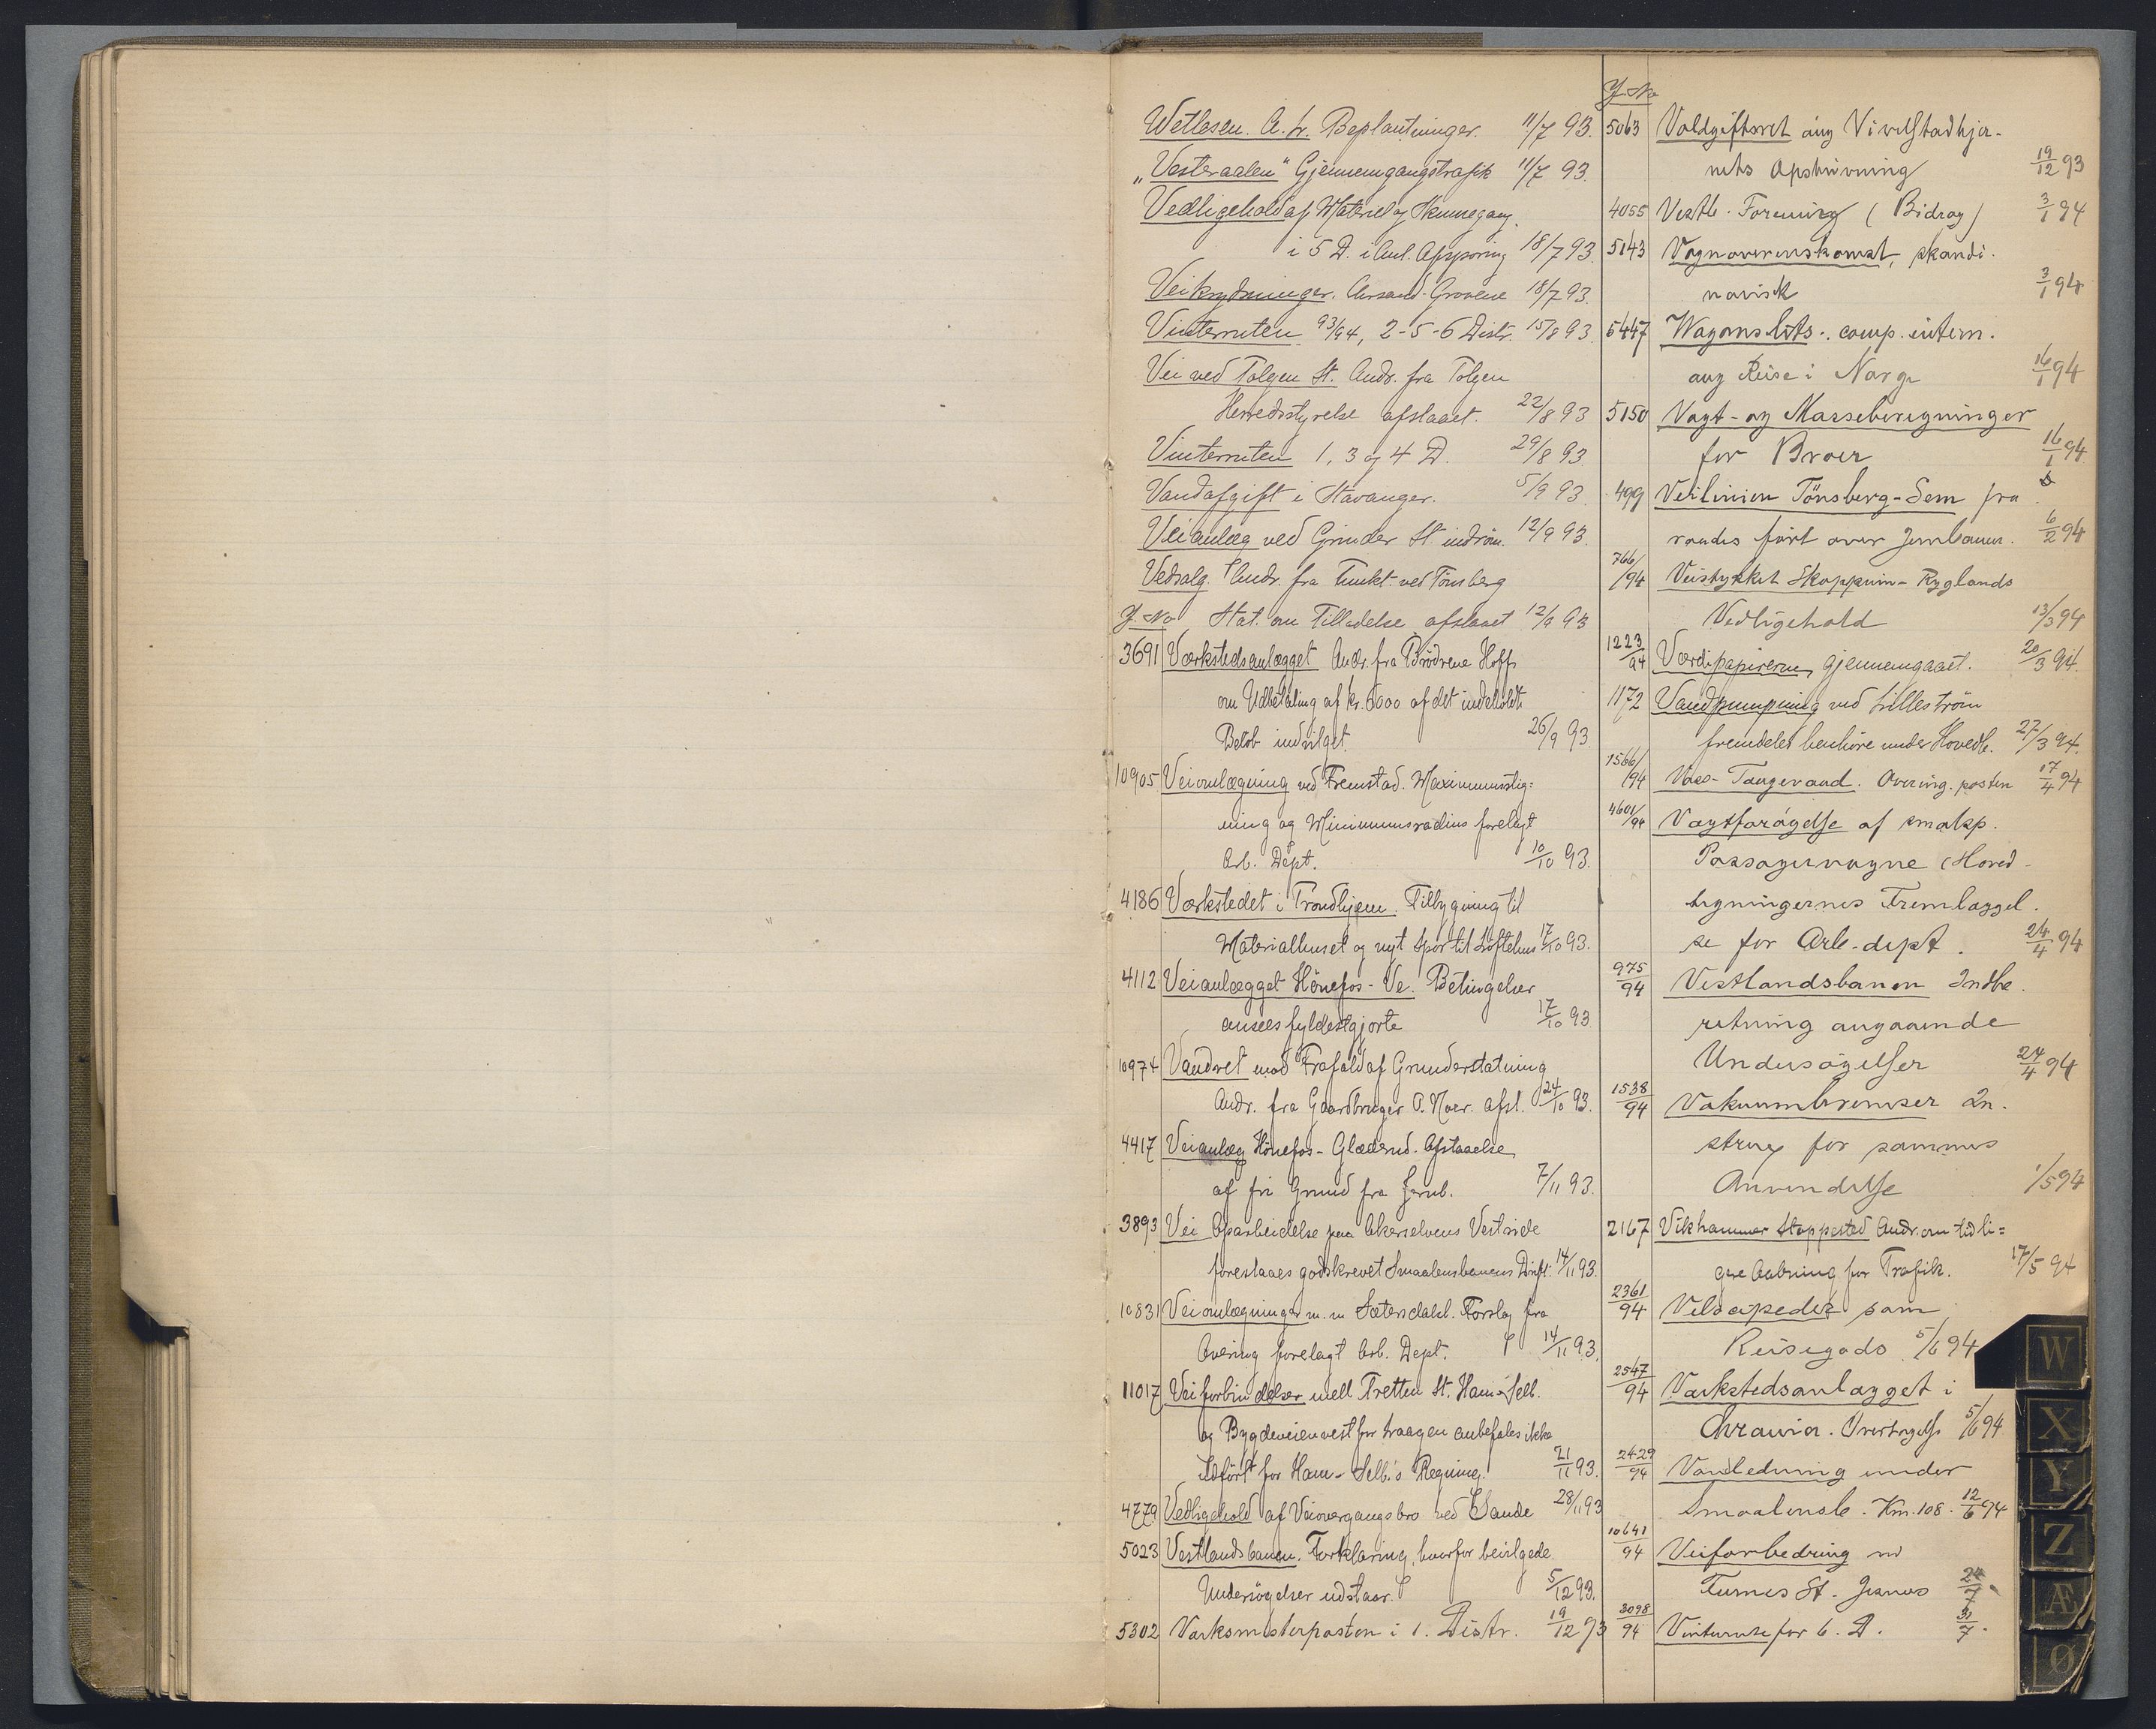 Wetlesen. A. H. Beplantninger. 11/7 93.
„Vesteraalen" Gjennemgangstrafik 11/7 93.
Vedligehold af Materiel og Skinnegang
i 5 D. i Anl. Opsporing 18/7 93.
Veikrydsninger. Chrsand-Grovene 18/7 93.
Vinterruten 93/94, 2-5-6 Distr. 15/8 93.
Vei ved Tolgen St. Andr. fra Tolgen
Herredsstyrelse afslaaet. 22/8 93
Vinterruten 1, 3 og 4 D. 29/8 93.
Vandafgift i Stavanger. 5/9 93
Veianlæg ved Grinder St. indrøm. 12/9 93.
Vedsalg. Andr. fra Funkt. ved Tönsberg
J. No Stat. om Tilladelse afslaaet 12/9 93
3691 Værkstedsanlægget Andr. fra Brödrene Hoff
om Udbetaling af kr. 5000 af det indeholdte
Beløb indvilget. 26/9 93
10905 Veiomlægning ved Fremstad. Maximumsstig=
ning og Minimumsradius forelagt
Arb. Dept. 10/10 93.
4186 Værkstedet i Trondhjem. Tilbygning til
Materialhuset og nyt Spor til Löftehus 17/10 93.
4112 Veianlægget Hönefos - Ve. Betingelser
ansees fyldestgjorte 17/10 93
10974 Vandret mod Frafald af Grunderstatning
Andr. fra Gaardbruger O. Moer. afsl. 24/10 93.
4417 Veianlæg Hönefos - Glæderud. Afstaaelse
af fri Grund fra Jernb. 7/11 93.
3893 Vei Oparbeidelse paa Akerselvens Vestside
foreslaaes godskrevet Smaalensbanens Drift. 14/11 93.
10831 Veiomlægninger m. m Sætersdalsb. Forslag fra
Overing forelagt Arb. Dept. 14/11 93.
11017 Veiforbindelser mell Tretten St. Ham-Selb.
og Bygdeveien vest for Laagen anbefales ikke
udført for Ham-Selb.'s Regning. 21/11 93.
4779 Vedligehold af Veiovergangsbro ved Sande 28/11 93
5023 Vestlandsbanen. Forklaring, hvorfor bevilgede
Undersögelser udstaar. 5/12 93.
5302 Værksmesterposten i 1. Distr. 19/12 93
J. No
5063 Voldgiftsret ang Vivelstadtjer-
nets Opskrivning 19/12 93
4055 Vestb. Forening (Bidrag) 3/1 94
5143 Vognoverenskomst, skandi-
navisk 3/1 94
5447 Wagonslits. comp. intern.
ang Reise i Norge 16/1 94
5150 Vægt- og Masseberegninger
for Broer 16/1 94
499 Veilinien Tönsberg-Sem fra
raades fört over Jernbanen. 6/2 94
766/94 Veistykket Skoppum - Ryglands
Vedligehold 13/3 94
1223/94 Værdipapirerne, gjennemgaaet. 20/3 94.
1172 Vandpumpning ved Lilleström
fremdeles henhöre under Hovedb. 27/3 94.
1566/94 Vass-Tangevand. Overing. posten 17/4 94
4601/94 Vægtforøgelse af smalsp.
Passagervogne (Hoved-
tegningernes Fremlæggel-
se for Arb-dept. 24/4 94
975/94 Vestlandsbanen Indbe-
retning angaaende
Undersøgelser 24/4 94
1538/94 Vakuumbremser In-
strux for sammes
Anvendelse 1/5 94
2167 Vikhammer Stoppested Andr. om tidli=
gere Aabning for Trafik. 17/5 94
2361/94 Velocipeder som
Reisegods 5/6 94
2547/94 Værkstedsanlægget i
Chrania. Overtagelse 5/6 94
2429/94 Vandledning under
Smaalensb. Km. 108. 12/6 94
10641/94 Veiforbedring ved
Furnes St. 24/7
3098/94 Vinterrute for 6. D. 31/7
W
X
Y
Z
Æ
Ø